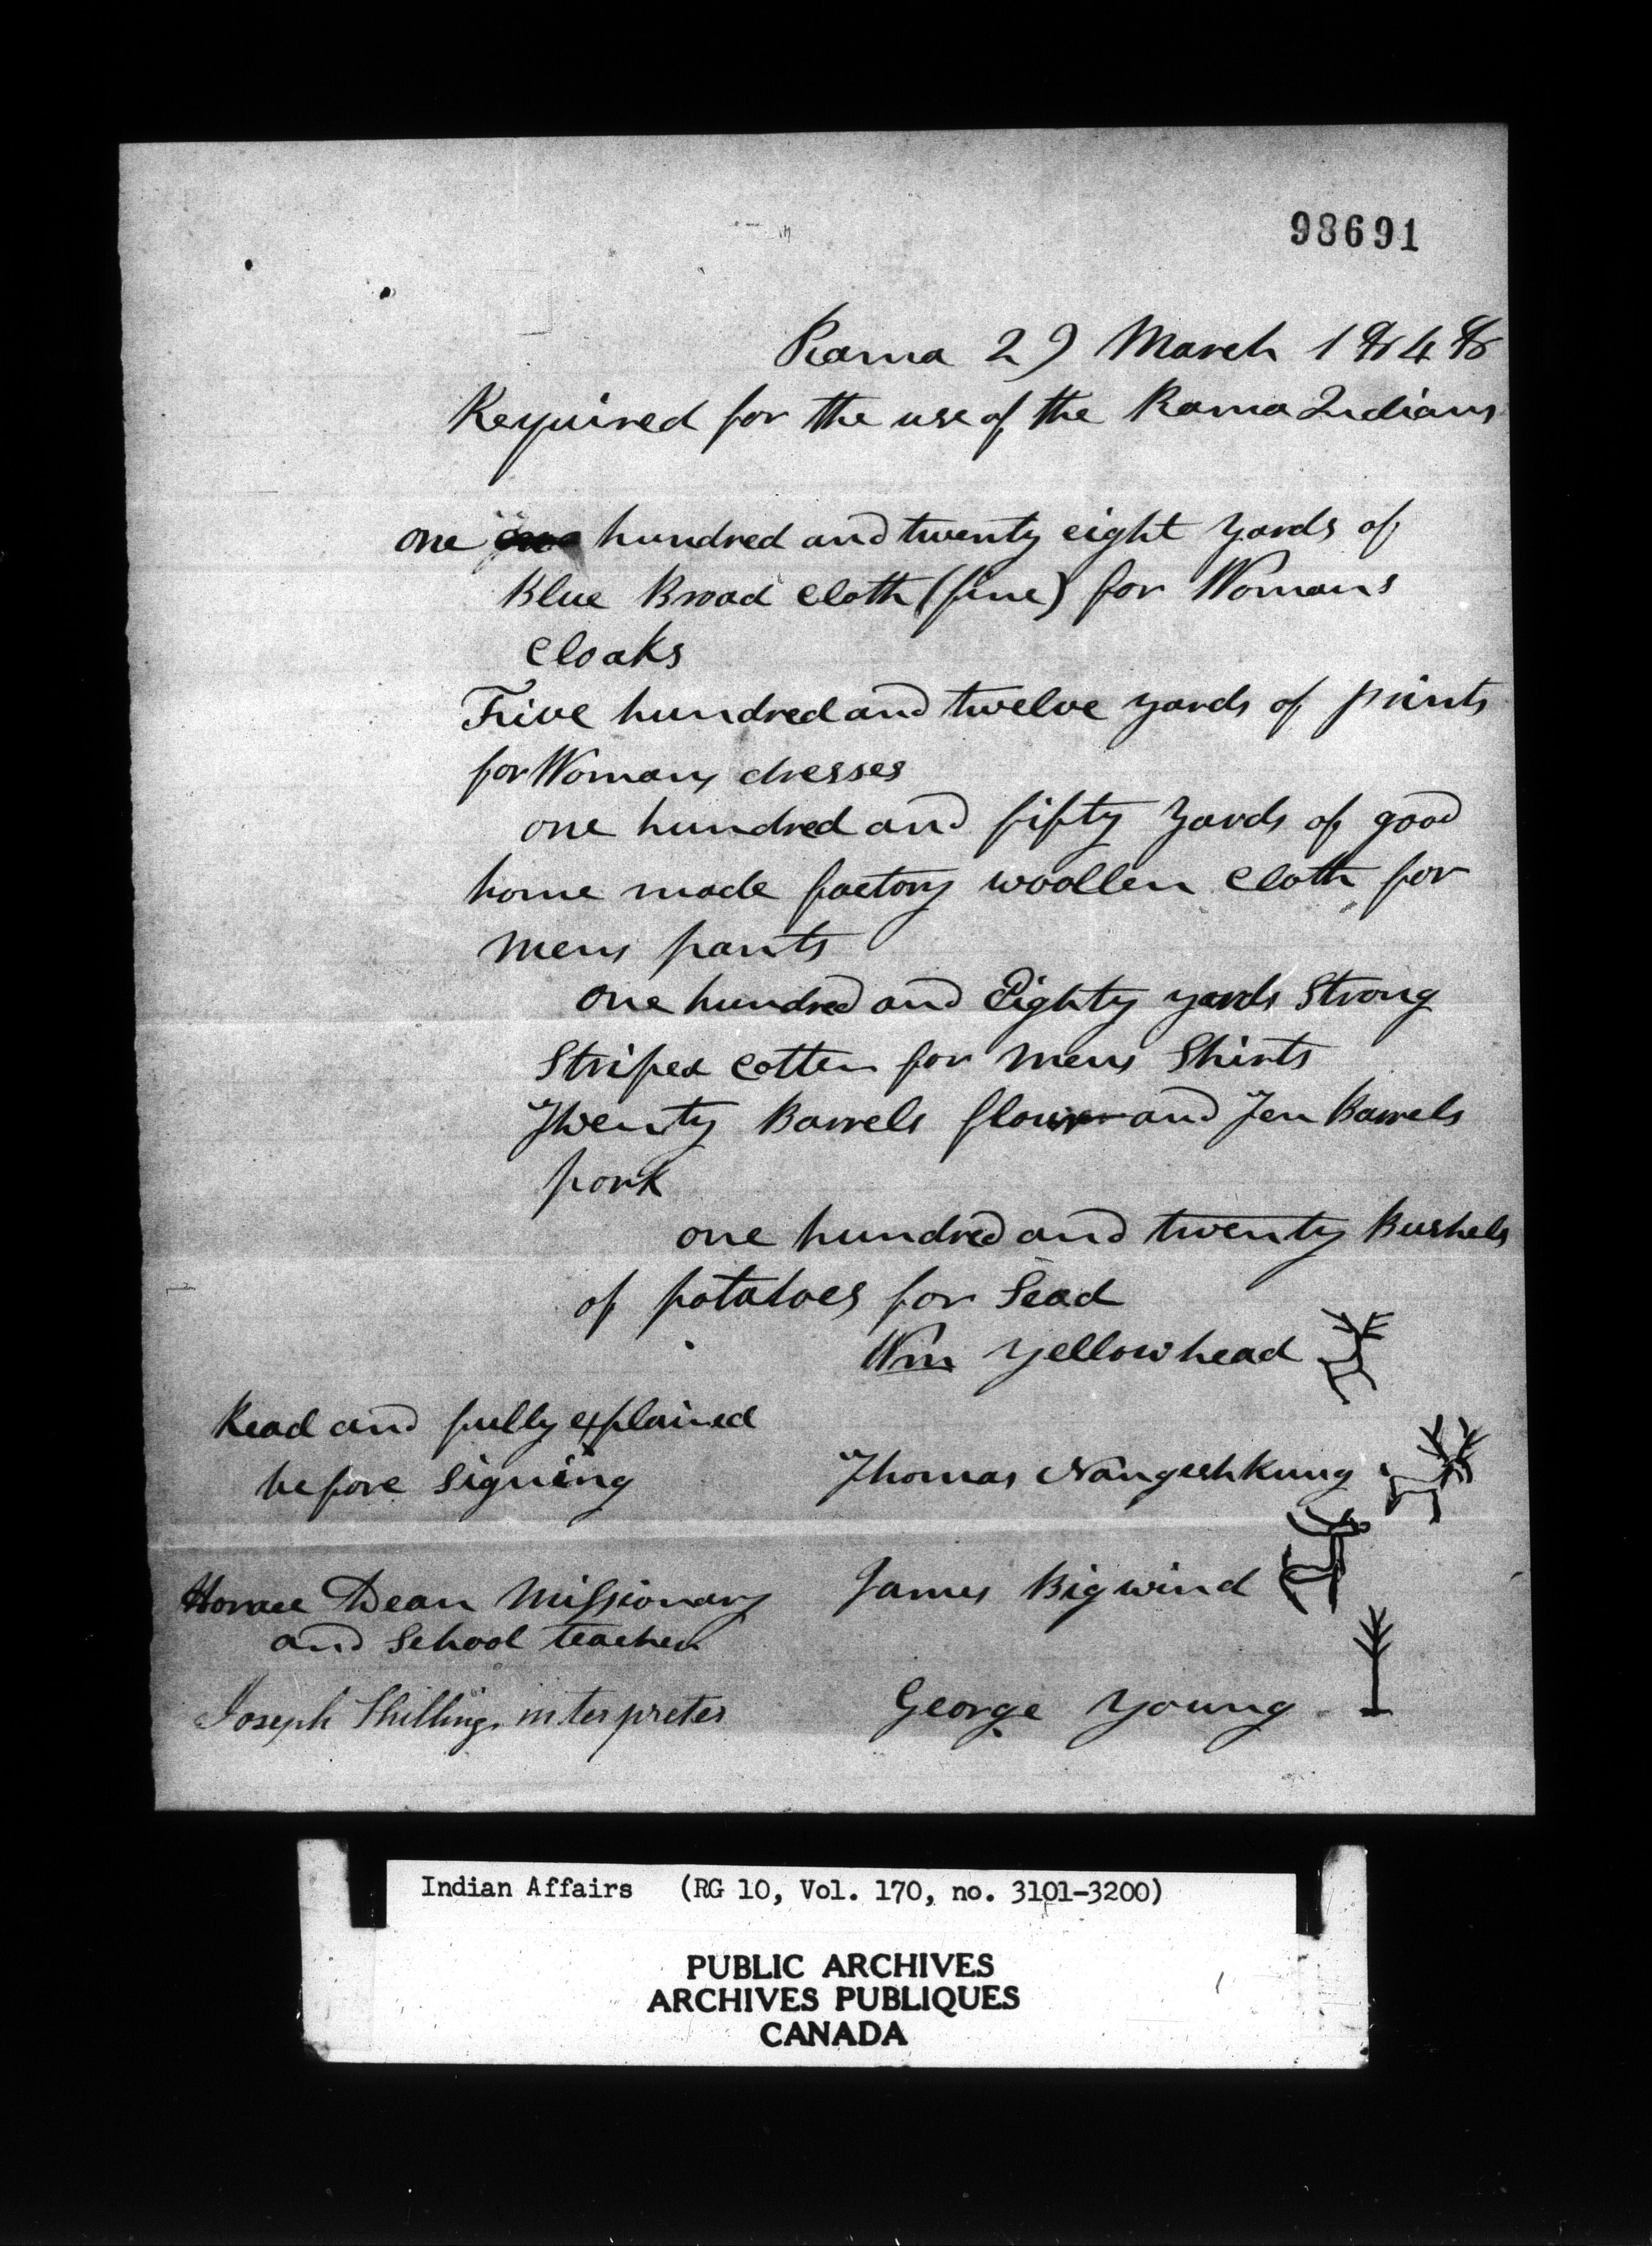 98691
Rama 29 March 1848
Required for the use of the Rama Indians
one hundred and twenty eight yards of
Blue Broad Cloth (fine) for Womans
Cloaks
Frive hundred and twelve yards of prints
for Womans dresses
one hundred and fifty yards of good
home made factory woollen Cloth for
mens pants
one hundred and Eighty yards Strong
Striped cotten for mens Shirts
Twenty Barrels flour and Ten Barrels
pork
one hundred and twenty Bushels
of potatoes for Sead
Wm Yellowhead
Read and fully explained
before signing
Thomas Nangeshkung
Horace Dean Missionary
and School teacher
James Bigwind
Joseph Shilling interpreter
George Young
Indian Affairs (RG 10, Vol. 170, no. 3101-3200)
PUBLIC ARCHIVES
ARCHIVES PUBLIQUES
CANADA